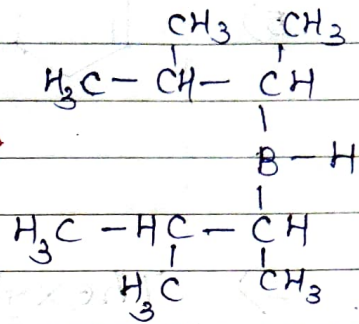 CH3 CH3
H3C - CH - CH
B - H
H3C - HC - CH
H3C CH3